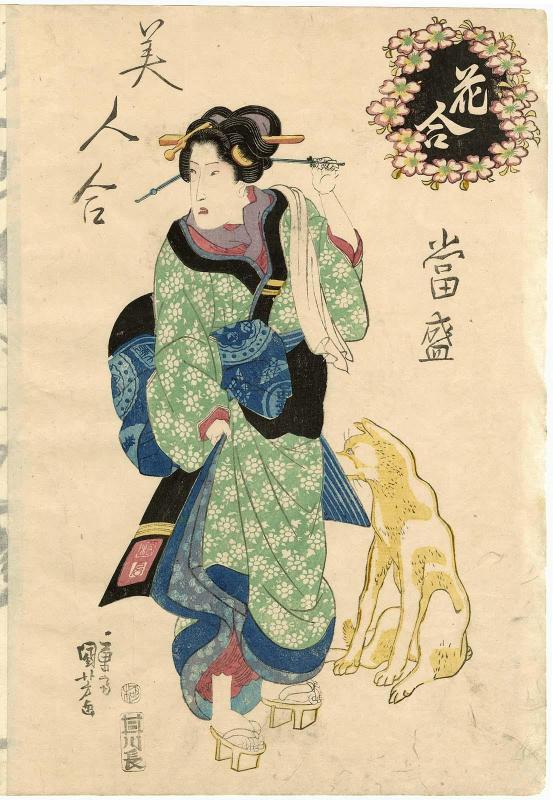 花合
當盛
美人合
一勇斎
國芳画
川長